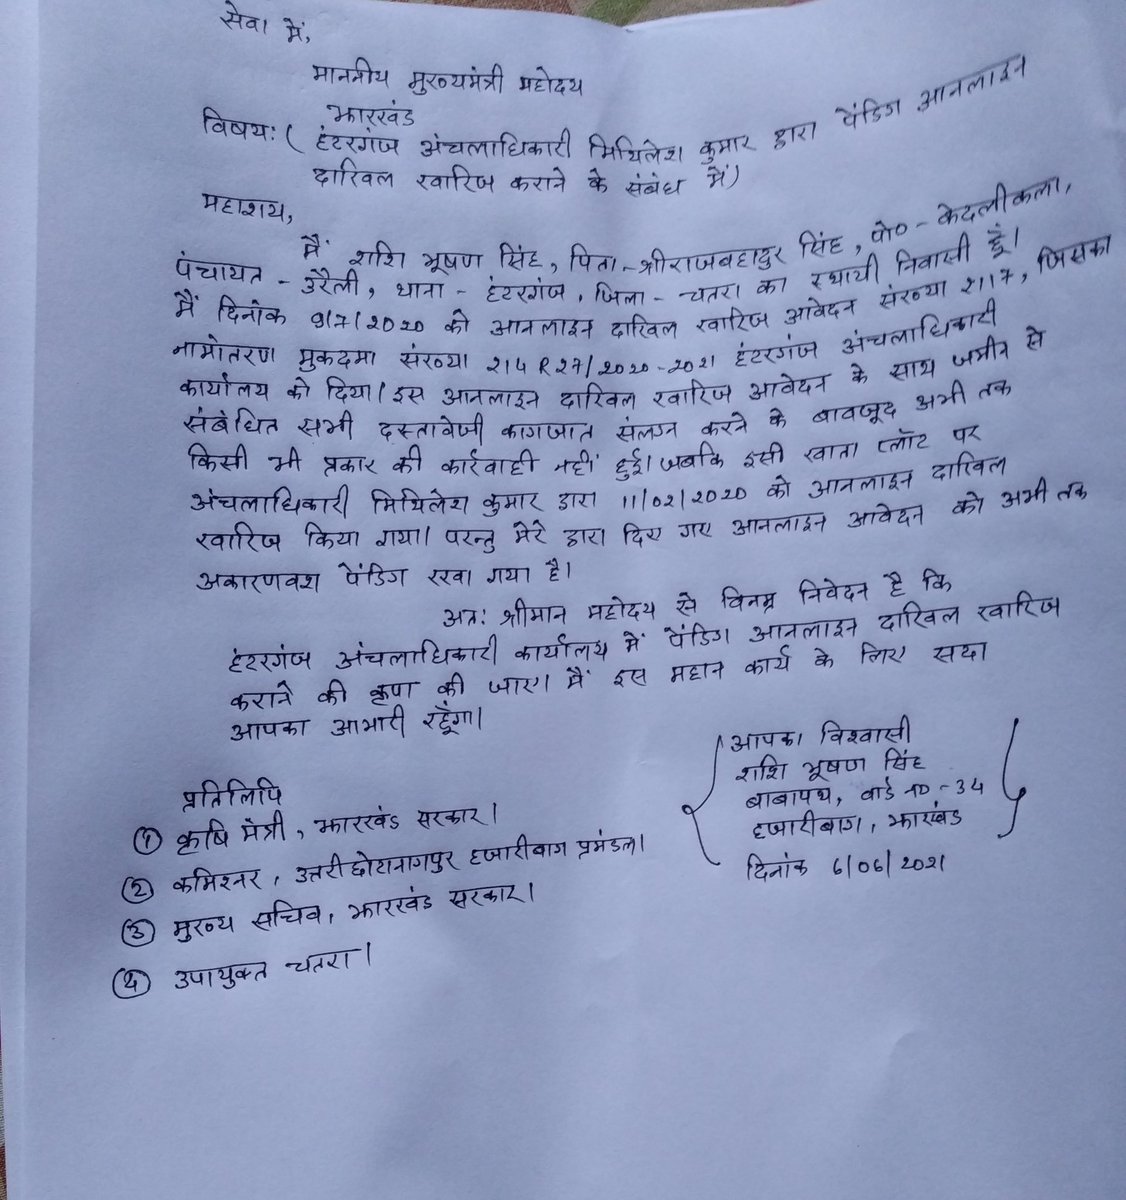 सेवा में,
माननीय मुख्यमंत्री महोदय
झारखंड
विषय: ( हंटरगंज अंचलाधिकारी मिथिलेश कुमार द्वारा पेंडिंग आनलाइन
दाखिल खारिज कराने के संबंध में)
महाशय,
मैं शशि भूषण सिंह, पिता - श्री राजबहादुर सिंह, पो० - केदलीकला,
पंचायत - उरैली, थाना - हंटरगंज, जिला - चतरा का स्थायी निवासी हूँ।
मैं दिनांक 9/7/2020 को आनलाइन दाखिल खारिज आवेदन संख्या 2117, जिसका
नामांतरण मुकदमा संख्या 214 R 27/2020-2021 हंटरगंज अंचलाधिकारी
कार्यालय को दिया। इस आनलाइन दाखिल खारिज आवेदन के साथ जमीन से
संबंधित सभी दस्तावेजी कागजात संलग्न करने के बावजूद अभी तक
किसी भी प्रकार की कार्रवाही नहीं हुई। जबकि इसी खाता प्लॉट पर
अंचलाधिकारी मिथिलेश कुमार द्वारा 11/02/2020 को आनलाइन दाखिल
खारिज किया गया। परन्तु मेरे द्वारा दिए गए आनलाइन आवेदन को अभी तक
अकारणवश पेंडिंग रखा गया है।
अत: श्रीमान महोदय से विनम्र निवेदन है कि
हंटरगंज अंचलाधिकारी कार्यालय में पेंडिंग आनलाइन दाखिल खारिज
कराने की कृपा की जाए। मैं इस महान कार्य के लिए सदा
आपका आभारी रहूँगा।
आपका विश्वासी
शशि भूषण सिंह
बाबापथ, वार्ड no - 34
हजारीबाग, झारखंड
दिनांक 6/06/2021
प्रतिलिपि
① कृषि मंत्री, झारखंड सरकार।
② कमिश्नर, उत्तरी छोटानागपुर हजारीबाग प्रमंडल।
③ मुख्य सचिव, झारखंड सरकार।
④ उपायुक्त चतरा।